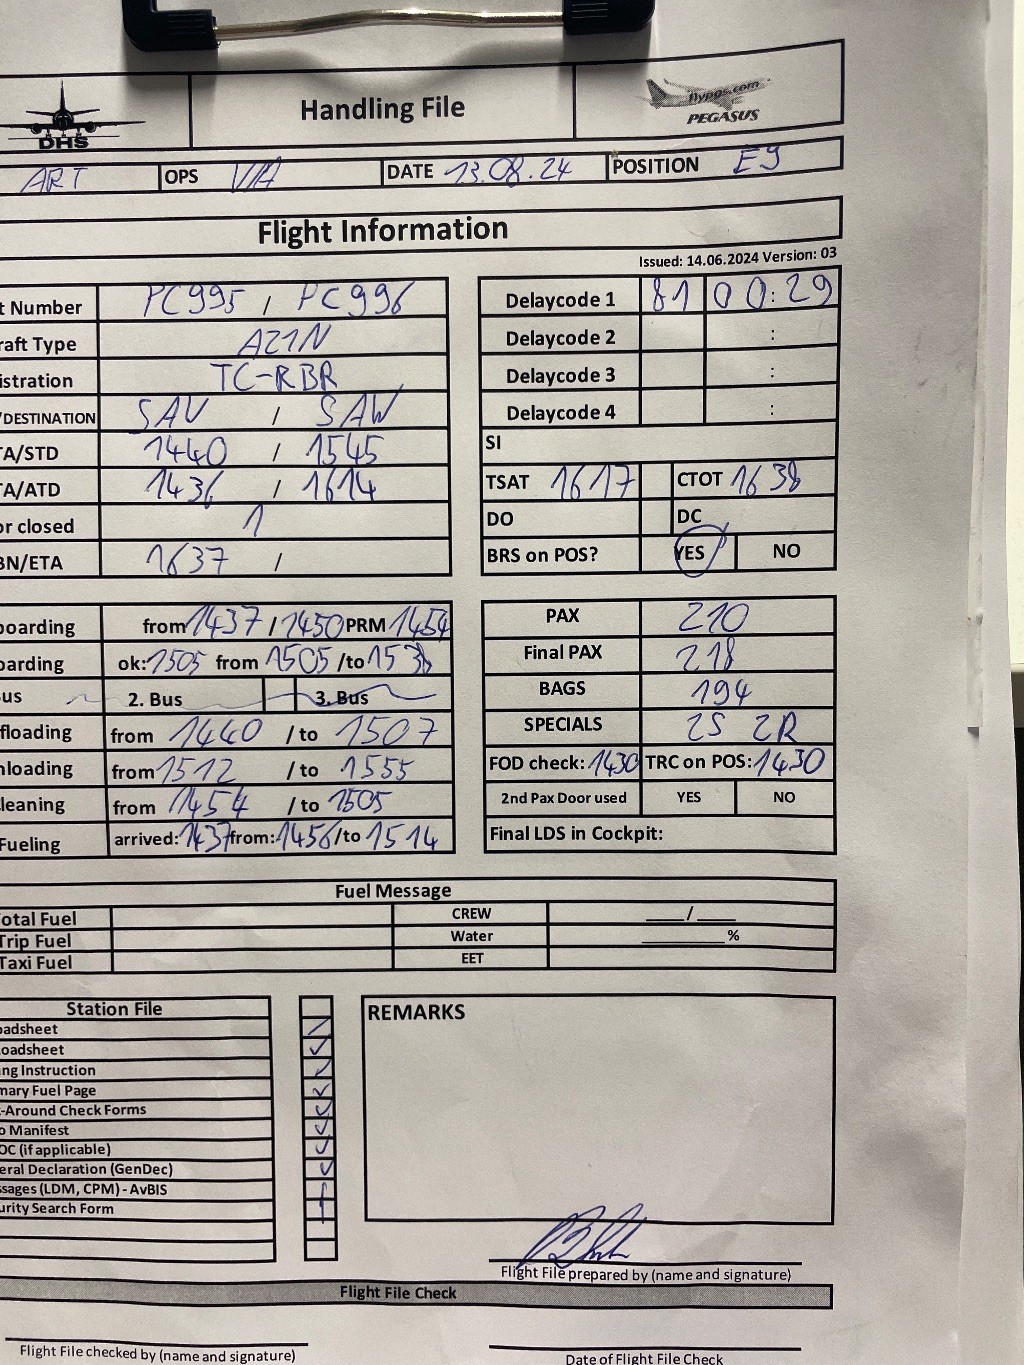 DHS
Handling File
flypgs.com
PEGASUS
ART OPS VIA DATE 13.08.24 POSITION E9
Flight Information
Issued: 14.06.2024 Version: 03
t Number PC995 / PC996
raft Type A21N
istration TC-RBR
/DESTINATION SAV / SAW
TA/STD 1440 / 1545
TA/ATD 1436 / 1614
or closed 1
BN/ETA 1637 /
Delaycode 1 81 00:29
Delaycode 2 :
Delaycode 3 :
Delaycode 4 :
SI
TSAT 1617 CTOT 1638
DO DC
BRS on POS? YES NO
boarding from 1437 / 1450 PRM 1454
oarding ok: 1505 from 1505 /to 1538
us 2. Bus 3. Bus
ffloading from 1440 / to 1507
nloading from 1512 / to 1555
leaning from 1454 / to 1505
Fueling arrived: 1437 from: 1456 /to 1514
PAX 210
Final PAX 218
BAGS 194
SPECIALS 2S 2R
FOD check: 1430 TRC on POS: 1430
2nd Pax Door used YES NO
Final LDS in Cockpit:
Fuel Message
otal Fuel CREW ____/____
Trip Fuel Water ________%
Taxi Fuel EET
Station File
oadsheet
oadsheet
ng Instruction
mary Fuel Page
-Around Check Forms
o Manifest
OC (if applicable)
eral Declaration (GenDec)
ssages (LDM, CPM) - AvBIS
urity Search Form
REMARKS
Flight File prepared by (name and signature)
Flight File Check
Flight File checked by (name and signature)
Date of Flight File Check